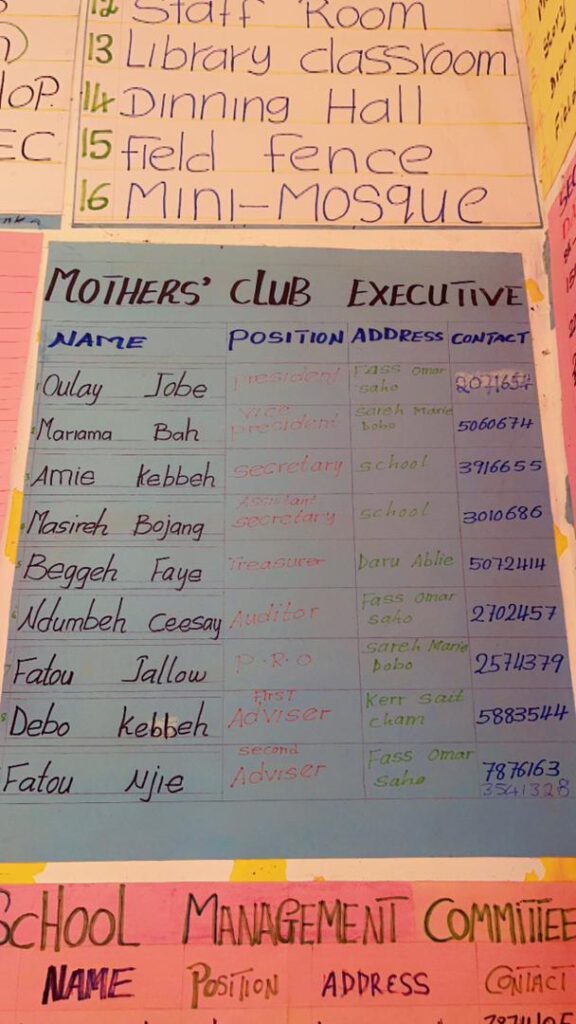 12 Staff Room
13 Library classroom
14 Dinning Hall
15 field fence
16 Mini-Mosque
MOTHERS' CLUB EXECUTIVE
NAME POSITION ADDRESS CONTACT
Oulay Jobe president Fass Omar saho 2071654
Mariama Bah vice president Sareh Marie Dobo 5060674
Amie Kebbeh secretary school 3916655
Masireh Bojang Assistant secretary school 3010686
Beggeh Faye Treasurer Daru Ablie 5072414
Ndumbeh Ceesay Auditor Fass Omar saho 2702457
Fatou Jallow P.R.O Sareh Marie Dobo 2574379
Debo Kebbeh first Adviser Kerr Sait cham 5883544
Fatou Njie second Adviser Fass Omar saho 7876163
3541328
SCHOOL MANAGEMENT COMMITTEE
NAME POSITION ADDRESS CONTACT